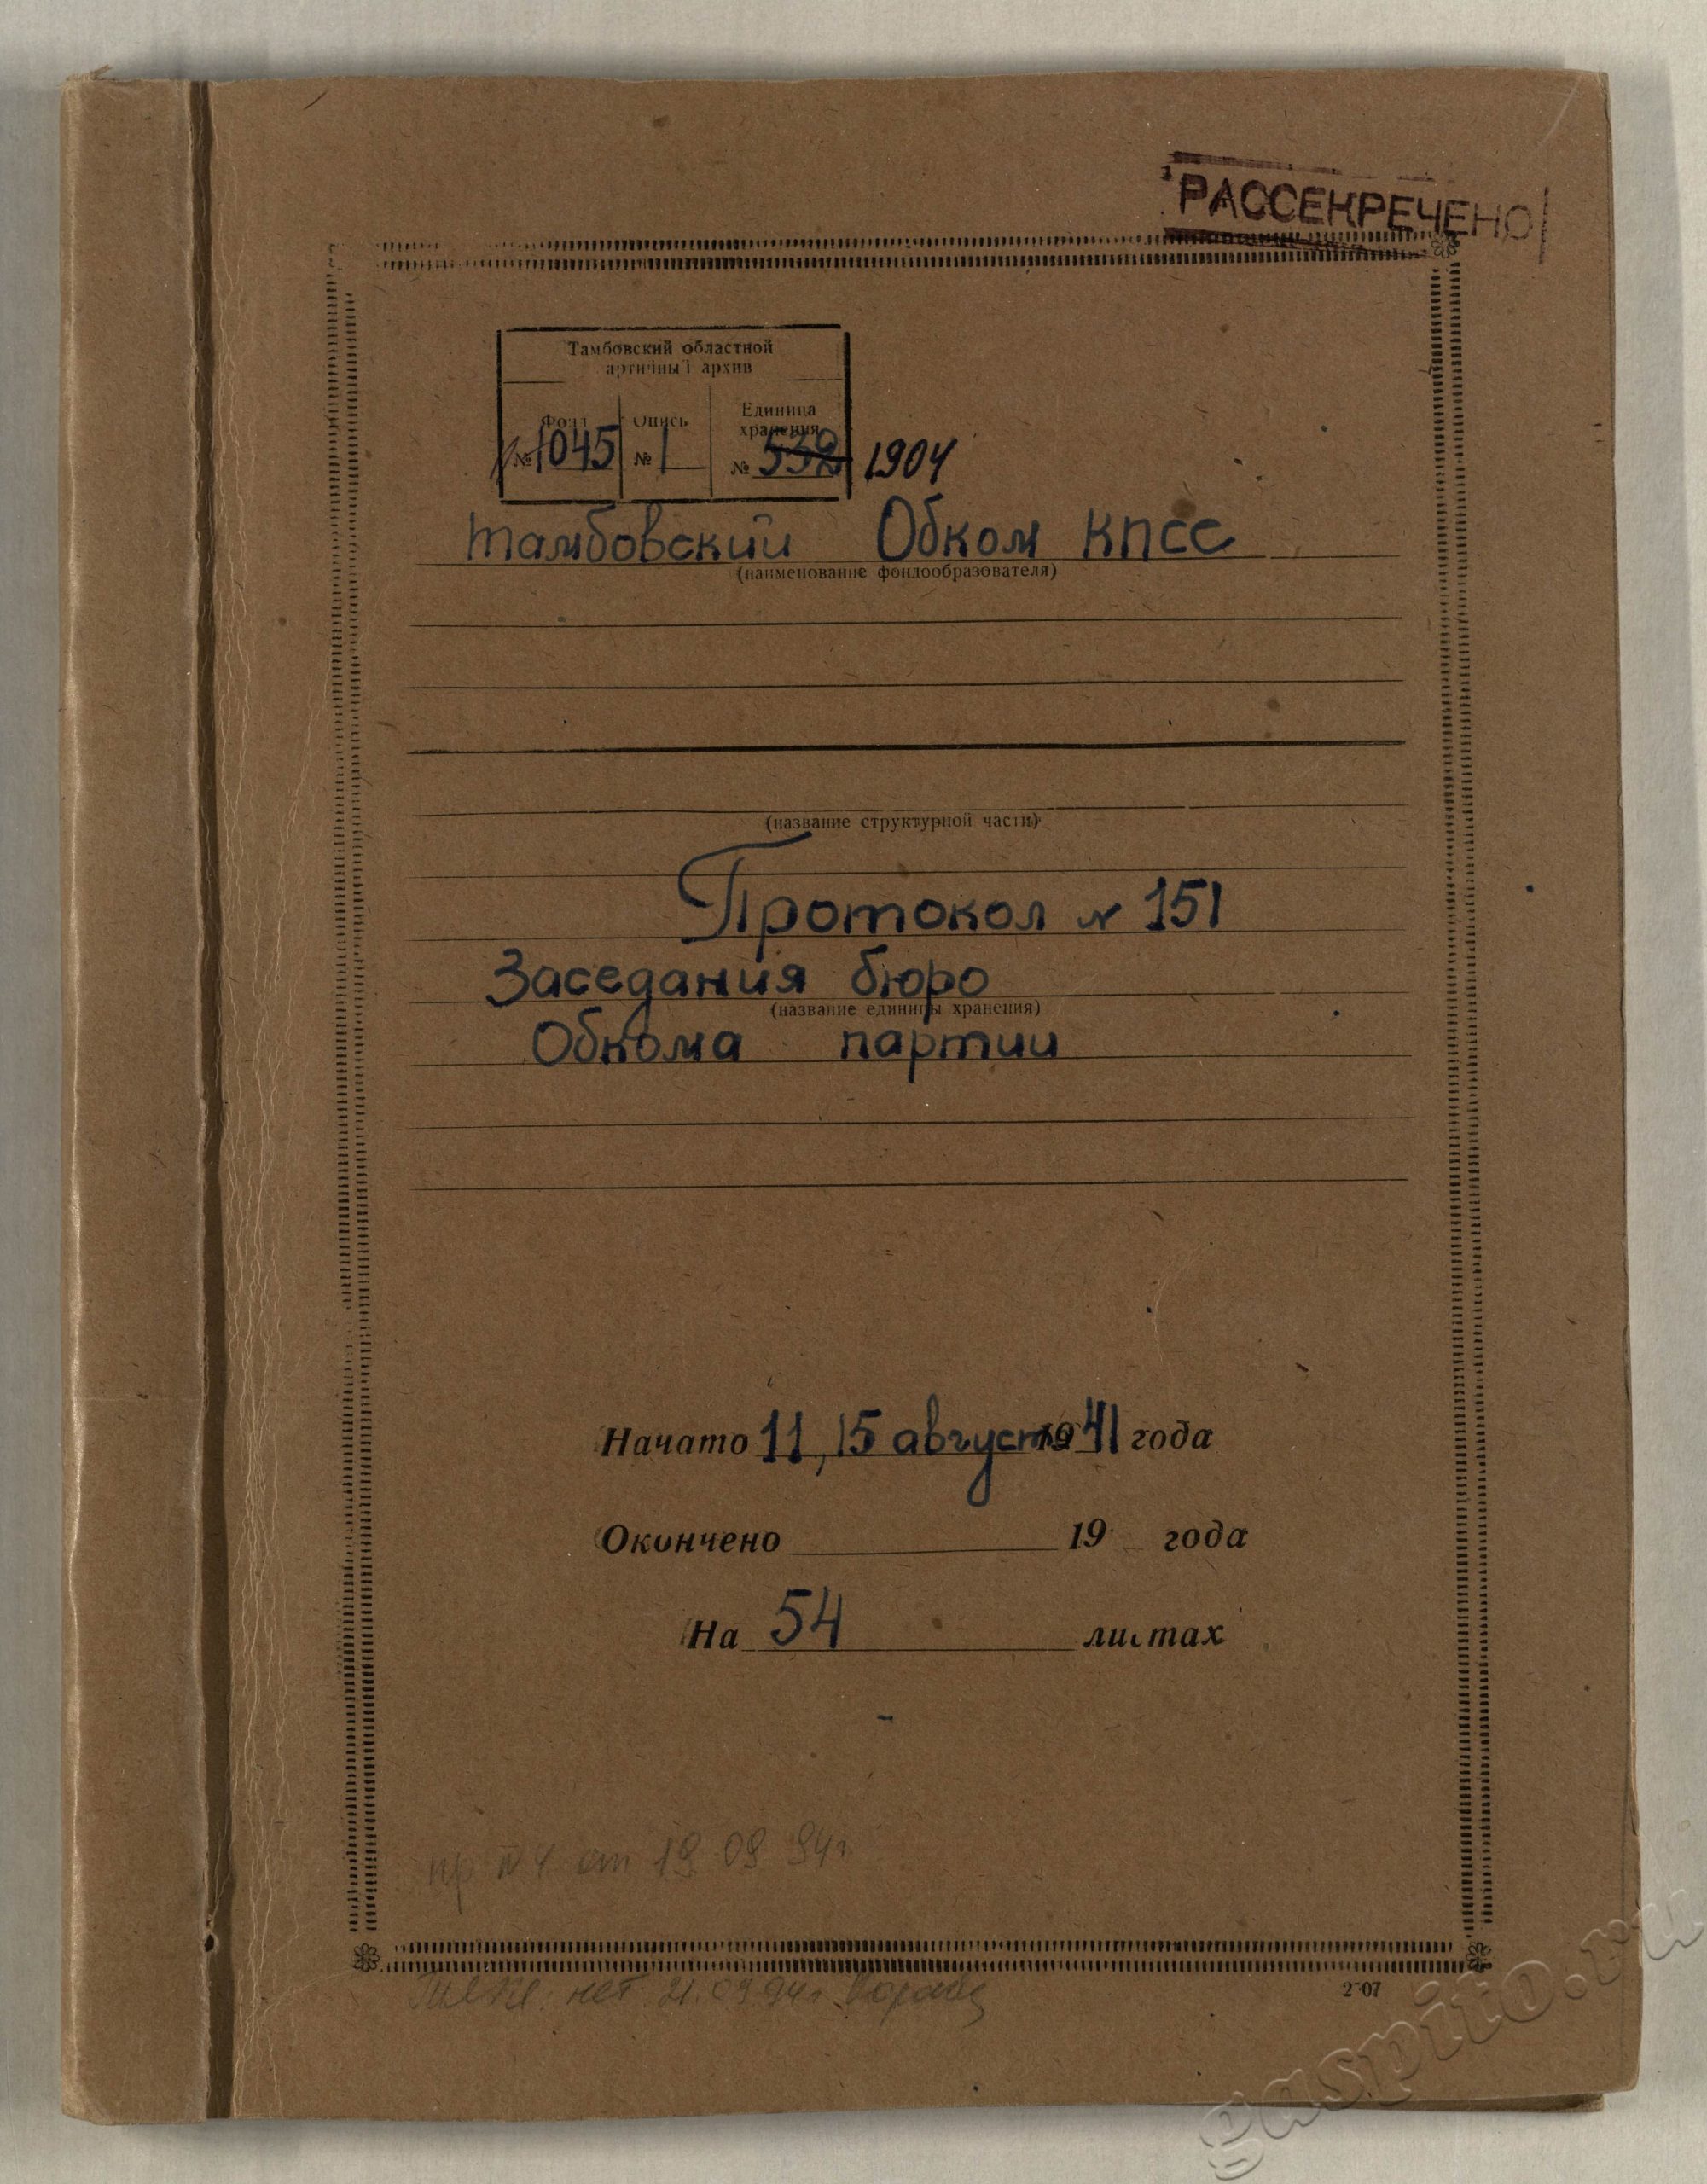 РАССЕКРЕЧЕНО
Тамбовский областной
артийный архив
Фонд Опись Единица хранения
№ 1045 № 1 № 532 1904
Тамбовский Обком КПСС
(наименование фондообразователя)
(название структурной части)
Протокол № 151
Заседания бюро
(название единицы хранения)
Обкома партии
Начато 11, 15 августа 1941 года
Окончено 19 года
На 54 листах
пр №4 от 19 09 94г.
нет 21.09.94г.
gaspito.ru